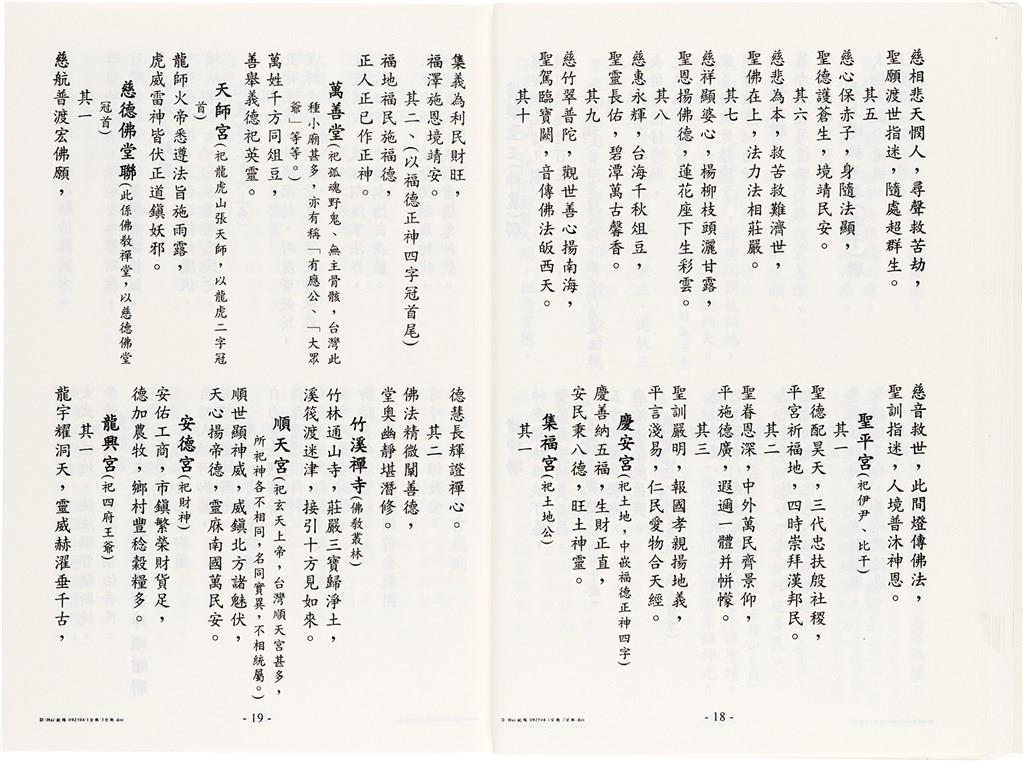 慈相悲天憫人，尋聲救苦劫，
聖願渡世指迷，隨處超群生。
其五
慈心保赤子，身隨法顯，
聖德護蒼生，境靖民安。
其六
慈悲為本，救苦救難濟世，
聖佛在上，法力法相莊嚴。
其七
慈祥顯婆心，楊柳枝頭灑甘露，
聖恩揚佛德，蓮花座下生彩雲。
其八
慈惠永輝，台海千秋俎豆，
聖靈長佑，碧潭萬古馨香。
其九
慈竹翠普陀，觀世善心揚南海，
聖駕臨寶闕，音傳佛法皈西天。
其十
慈音救世，此間燈傳佛法，
聖訓指迷，人境普沐神恩。
聖平宮(祀伊尹、比干)
其一
聖德配昊天，三代忠扶殷社稷，
平宮祈福地，四時崇拜漢邦民。
其二
聖眷恩深，中外萬民齊景仰，
平施德廣，遐邇一體并帡幪。
其三
聖訓嚴明，報國孝親揚地義，
平言淺易，仁民愛物合天經。
慶安宮(祀土地，中嵌福德正神四字)
慶善納五福，生財正直，
安民秉八德，旺土神靈。
集福宮(祀土地公)
其一
- 18 -
集義為利民財旺，
福澤施恩境靖安。
其二、(以福德正神四字冠首尾)
福地福民施福德，
正人正己作正神。
萬善堂(祀孤魂野鬼、無主骨骸，台灣此
種小廟甚多，亦有稱「有應公、「大眾
爺」等等。)
萬姓千方同俎豆，
善舉義德祀英靈。
天師宮(祀龍虎山張天師，以龍虎二字冠
首)
龍師火帝悉遵法旨施雨露，
虎威雷神皆伏正道鎮妖邪。
慈德佛堂聯(此係佛敎禪堂，以慈德佛堂
冠首)
其一
慈航普渡宏佛願，
德慧長輝證禪心。
其二
佛法精微闡善德，
堂奧幽靜堪潛修。
竹溪禪寺(佛敎叢林)
竹林通山寺，莊嚴三寶歸淨土，
溪筏渡迷津，接引十方見如來。
順天宮(祀玄天上帝，台灣順天宮甚多，
所祀神各不相同，名同實異，不相統屬。)
順世顯神威，威鎮北方諸魅伏，
天心揚帝德，靈庥南國萬民安。
安德宮(祀財神)
安佑工商，市鎮繁榮財貨足，
德加農牧，鄉村豐稔穀糧多。
龍興宮(祀四府王爺)
其一
龍宇耀洞天，靈威赫濯垂千古，
- 19 -